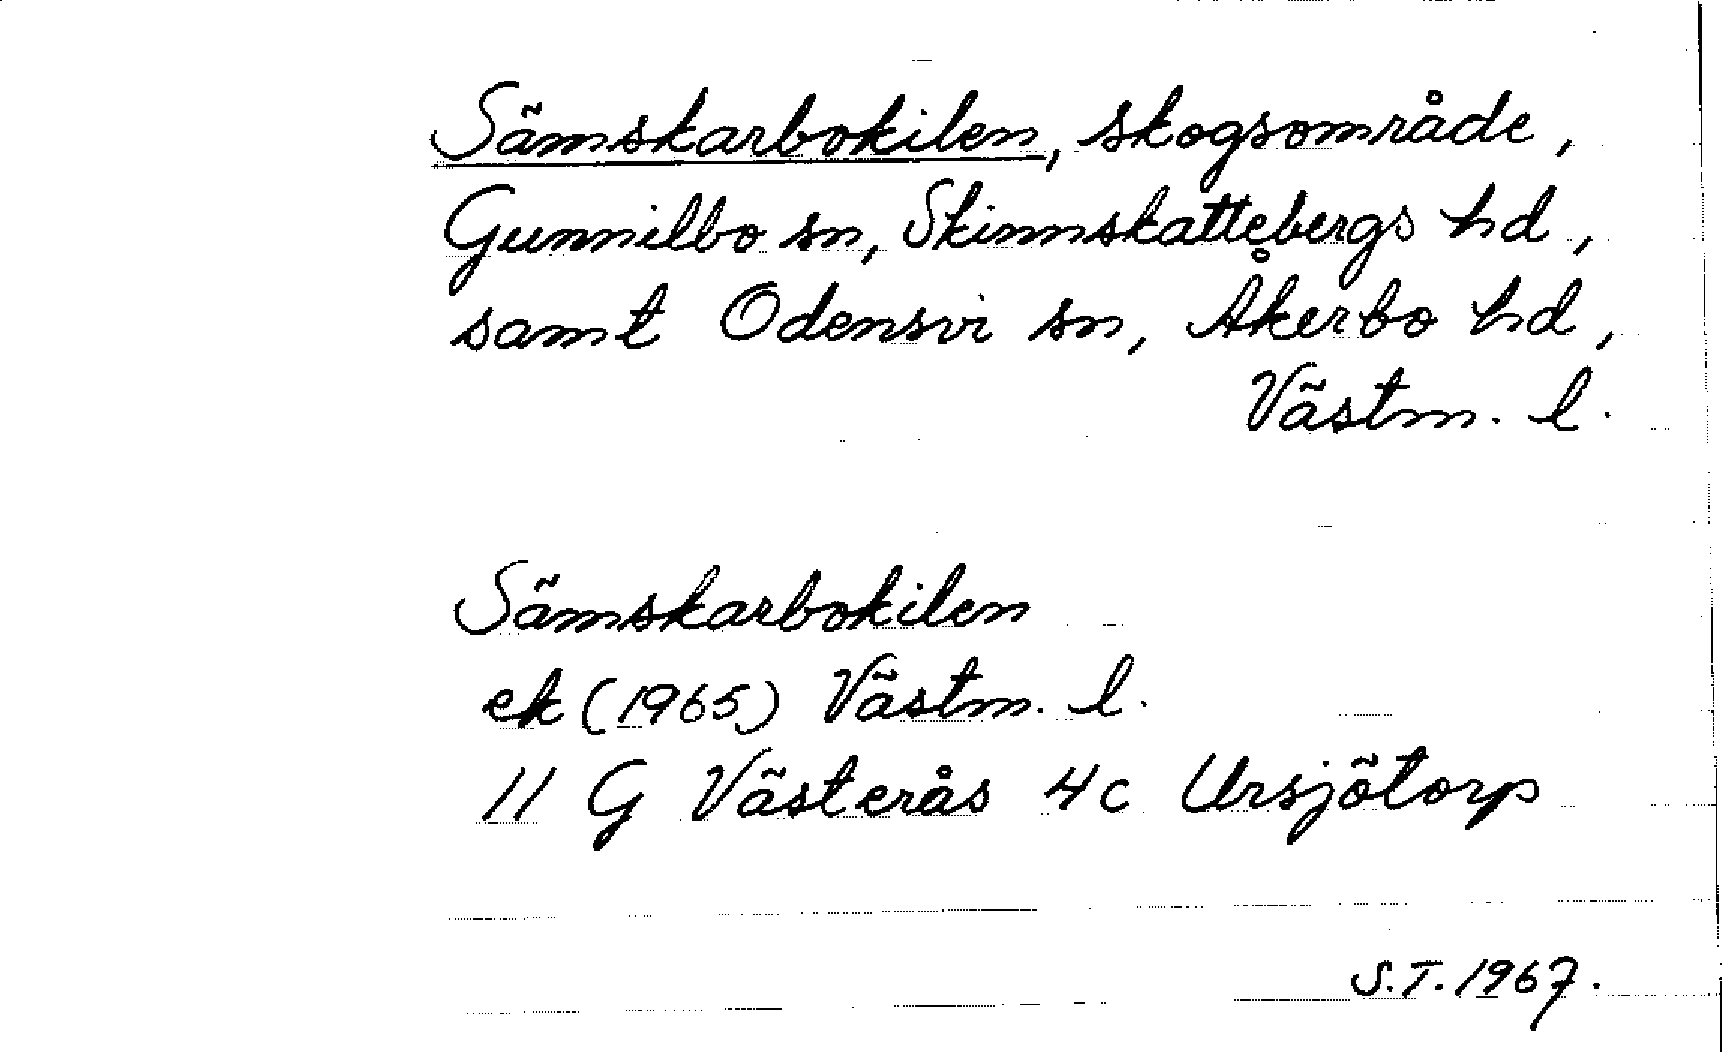 Sämskarbokilen, skogsområde,
Gunnilbo sn, Skinnskattebergs hd,
samt Odensvi sn, Åkerbo hd,
Västm. l.
Sämskarbokilen
ek (1965) Västm. l.
11 G Västerås 4c Ursjötorp
S.T. 1967.